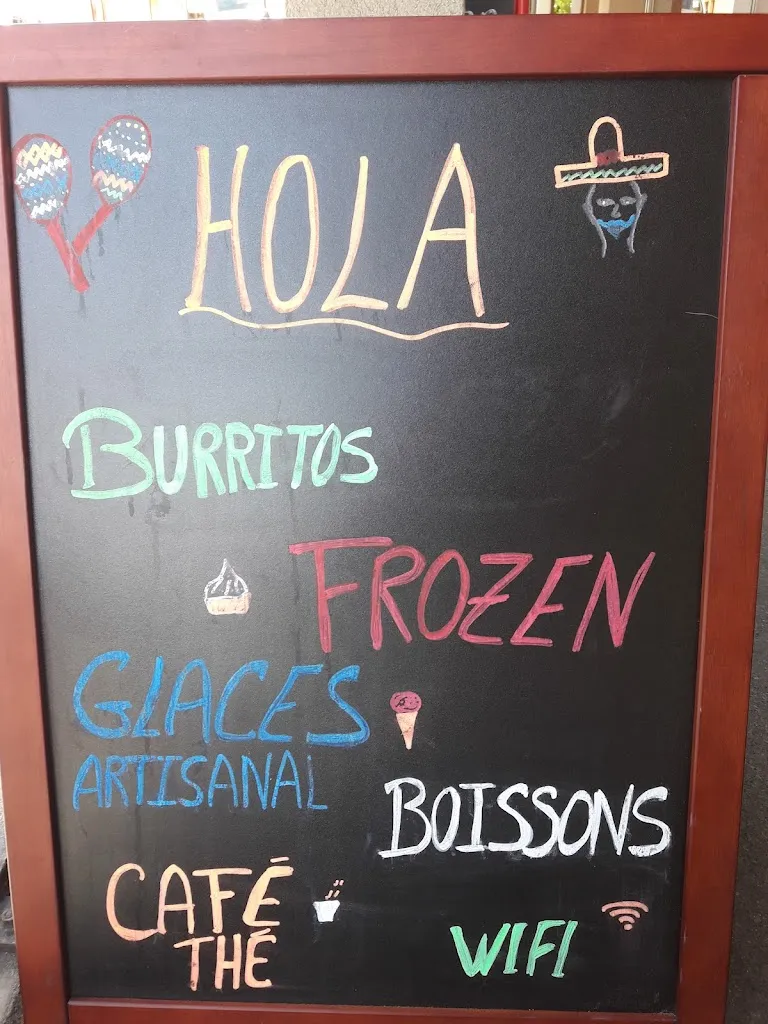 HOLA
BURRITOS
FROZEN
GLACES
ARTISANAL
BOISSONS
CAFÉ
THÉ
WIFI